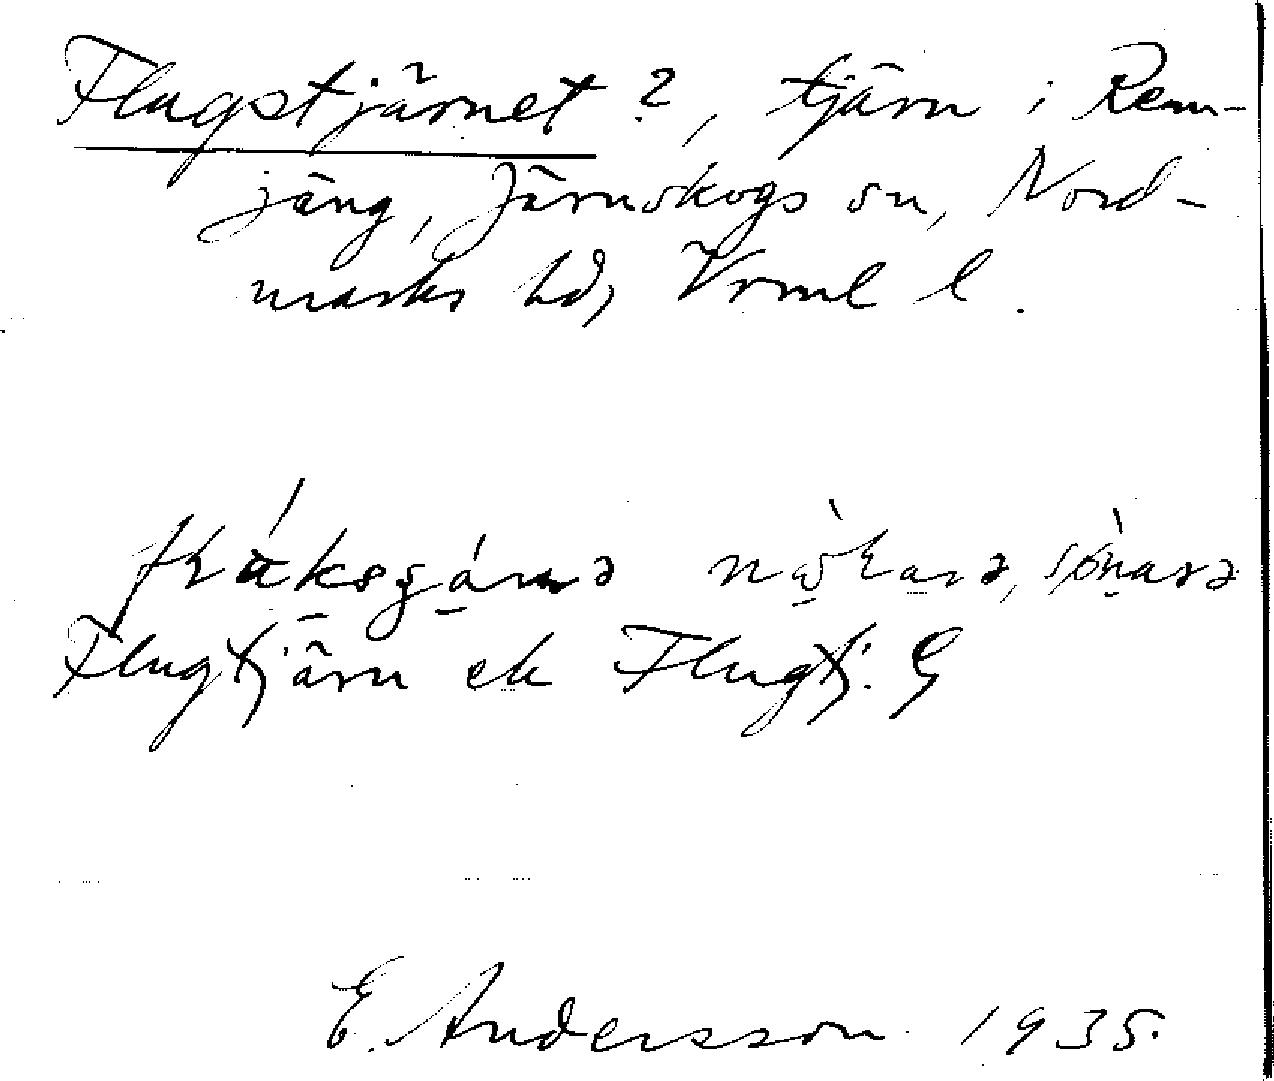 Flugstjärnet?, tjärn i Rem-
jäng, Järnskogs sn, Nord-
marks hd, Vrml l.
nǫ̀kara, sǫ̀nara
Flugtjärn ek Flugtj. G
E. Andersson 1935.